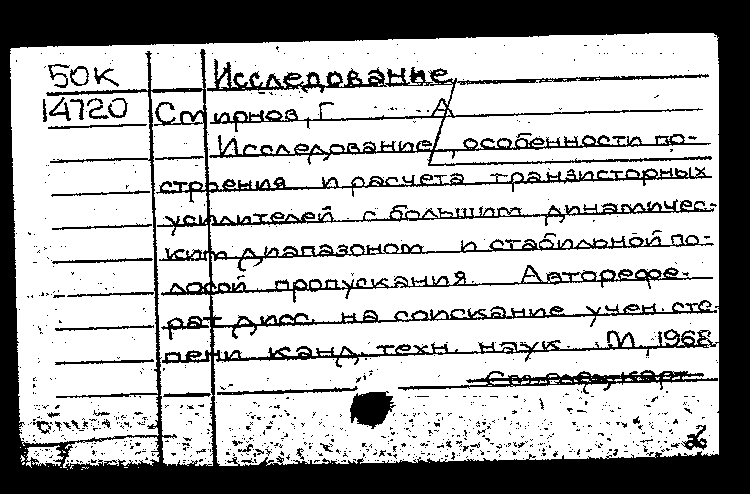 50К
14720
Исследование
Смирнов, Г А
Исследование особенности по-
строения и расчета транзисторных
усилителей с большим динамичес-
ким диапазоном и стабильной по-
лосой пропускания. Авторефе-
рат дисс. на соискание учен. сте-
пени канд. техн. наук. М, 1968
См. след. карт.